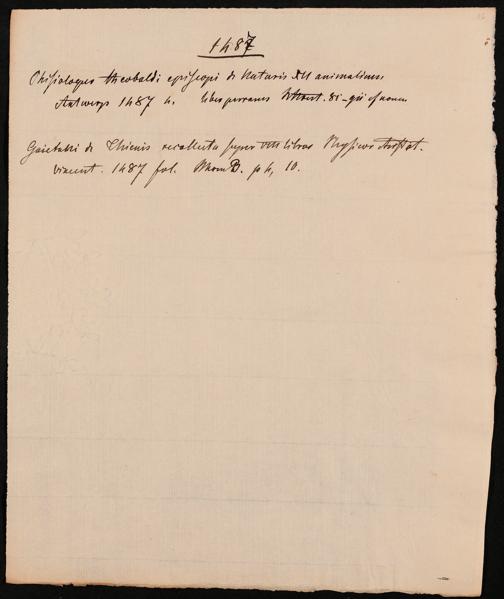 1487
Phisiologus Theobaldi episcopi de Naturis XII animalium
Antwerp 1487 4. liber perrarus
Gaietani de Thienis recollecta super VIII libros Physicor Aristot.
Vincent. 1487 fol. 10.